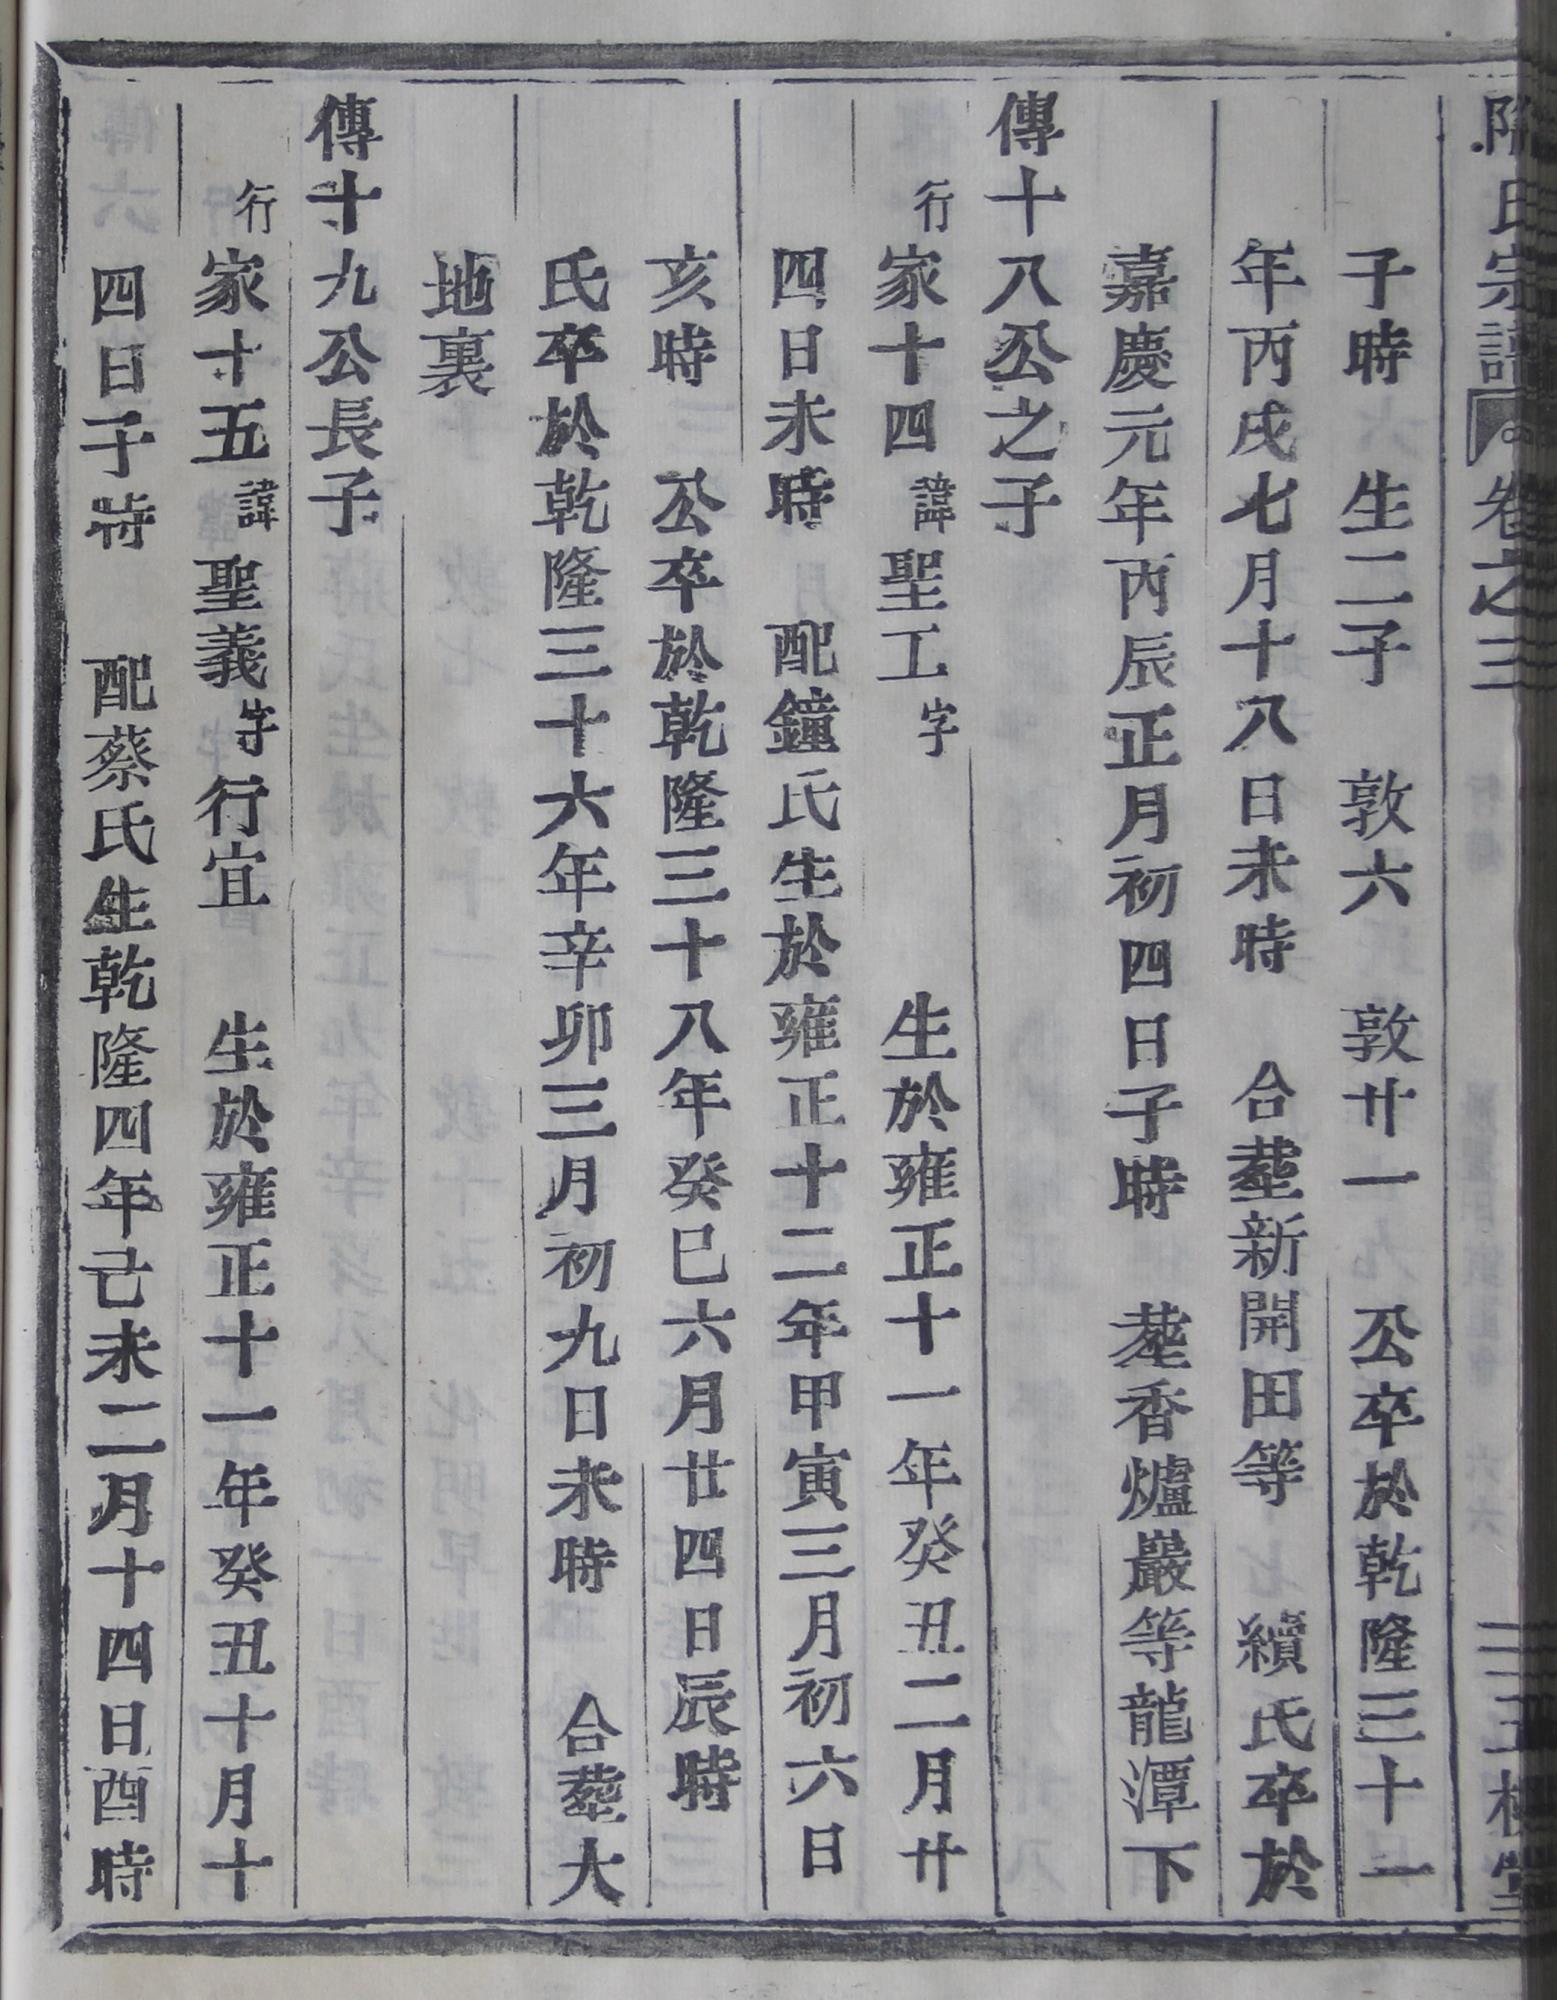 氏宗譜 卷之三
子時 生二子 敦六 敦廿一 公卒於乾隆三十一
年丙戌七月十八日未時 合塟新開田等 續氏卒於
嘉慶元年丙辰正月初四日子時 塟香爐巖等龍潭下
傳十八公之子
行家十四諱聖工字 生於雍正十一年癸丑二月廿
四日未時 配鐘氏生於雍正十二年甲寅三月初六日
亥時 公卒於乾隆三十八年癸巳六月廿四日辰時
氏卒於乾隆三十六年辛卯三月初九日未時 合塟大
地裏
傳十九公長子
行家十五諱聖義字行宜 生於雍正十一年癸丑十月十
四日子時 配蔡氏生乾隆四年己未二月十四日酉時